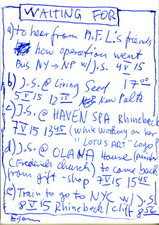 WAITING FOR
a) to hear from M.F.L.'s friends
how operation went
bus NY → NP w/ J.S. 4 V 15
b) J.S. @ Living Seed 17⁰⁰
5 V 15 12 V 15 New Paltz
c) J.S. @ HAVEN SPA Rhinebeck
7 V 15 13⁴⁵ (while working on her
"LOTUS ART" logo)
d) J.S. @ OLANA House (painter
(Frederick Church) to come back
from gift-shop 7 V 15 15⁴⁵
e) Train to go to NYC w/ J.S.
8 V 15 Rhinebeck/cliff 8⁵⁶